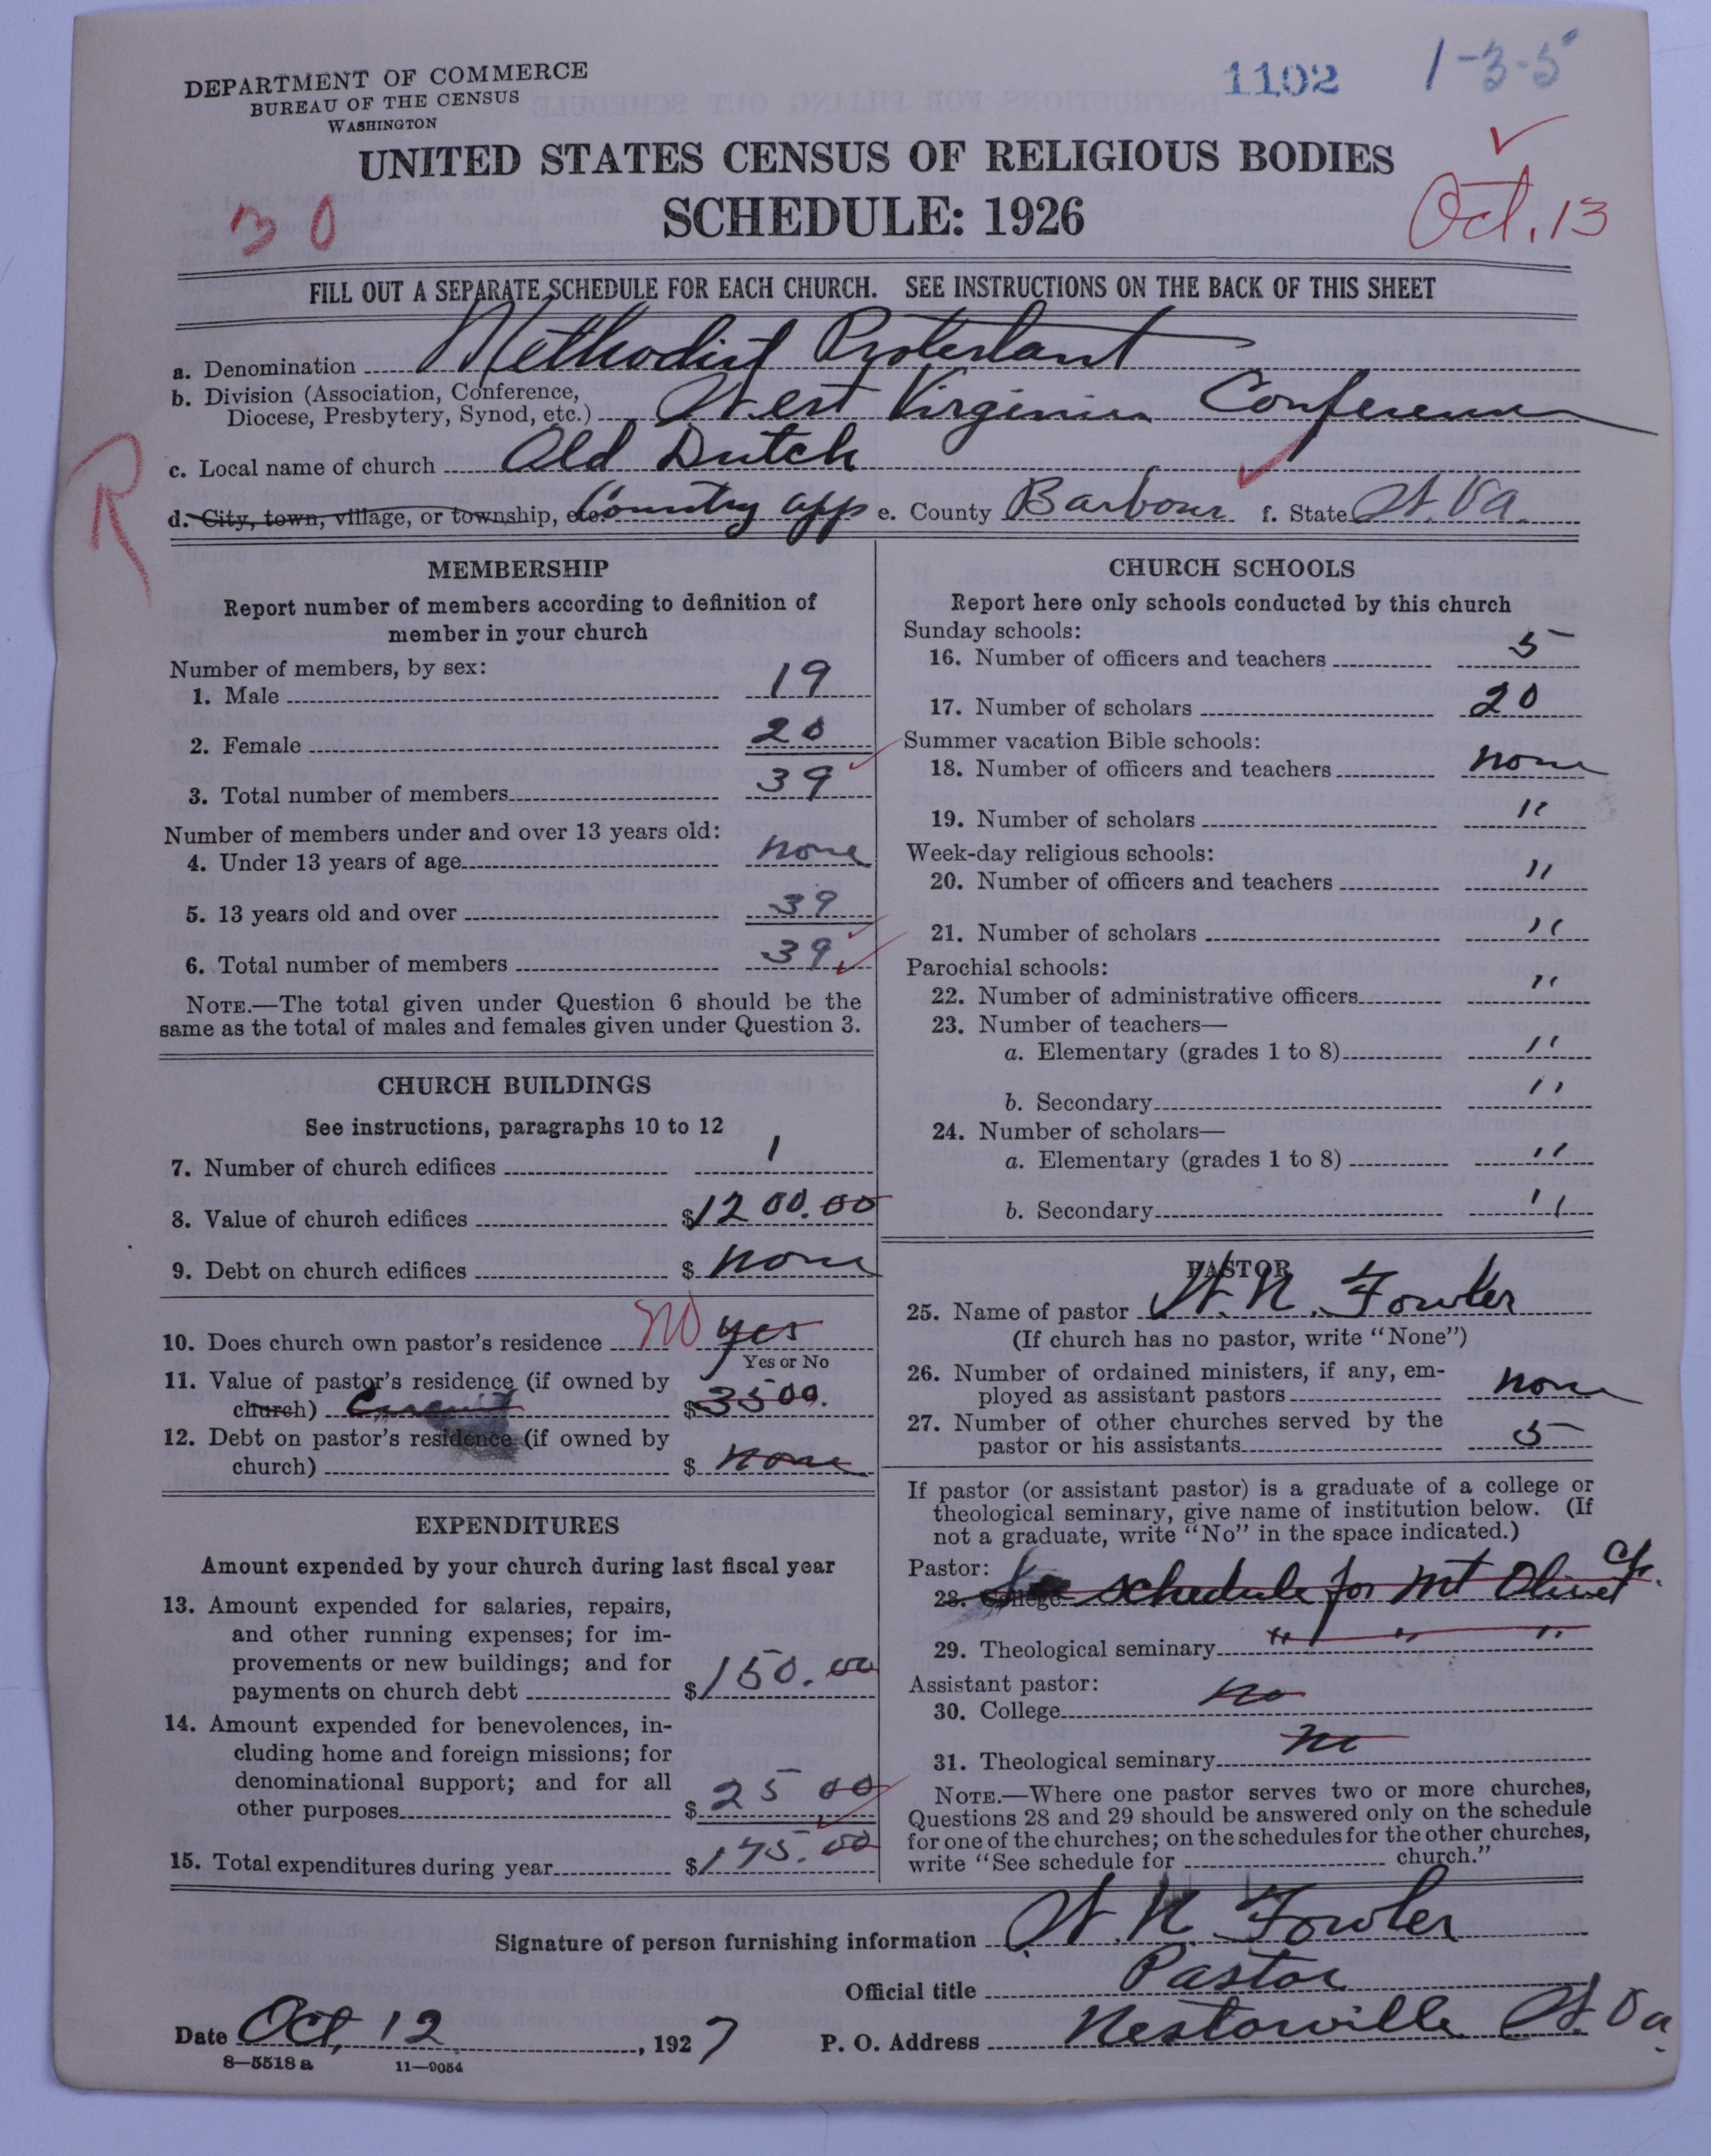 DEPARTMENT OF COMMERCE
BUREAU OF THE CENSUS
WASHINGTON
1102
1-3-5
UNITED STATES CENSUS OF RELIGIOUS BODIES
SCHEDULE: 1926
30
Oct. 13
FILL OUT A SEPARATE SCHEDULE FOR EACH CHURCH. SEE INSTRUCTIONS ON THE BACK OF THIS SHEET
a. Denomination Methodist Protestant
b. Division (Association, Conference,
Diocese, Presbytery, Synod, etc.) West Virginia Conference
c. Local name of church Old Dutch
R
d. City, town, village, or township, etc. Country app e. County Barbour f. State W. Va.
MEMBERSHIP
Report number of members according to definition of
member in your church
Number of members, by sex:
1. Male 19
2. Female 20
3. Total number of members 39
Number of members under and over 13 years old:
4. Under 13 years of age none
5. 13 years old and over 39
6. Total number of members 39
NOTE.—The total given under Question 6 should be the
same as the total of males and females given under Question 3.
CHURCH BUILDINGS
See instructions, paragraphs 10 to 12
7. Number of church edifices 1
8. Value of church edifices $1200.00
9. Debt on church edifices $ none
10. Does church own pastor's residence no yes
Yes or No
11. Value of pastor's residence (if owned by
church) Circuit $3500.
12. Debt on pastor's residence (if owned by
church) $ none
EXPENDITURES
Amount expended by your church during last fiscal year
13. Amount expended for salaries, repairs,
and other running expenses; for im-
provements or new buildings; and for
payments on church debt $150.00
14. Amount expended for benevolences, in-
cluding home and foreign missions; for
denominational support; and for all
other purposes $25 00
15. Total expenditures during year $175.00
CHURCH SCHOOLS
Report here only schools conducted by this church
Sunday schools:
16. Number of officers and teachers 5
17. Number of scholars 20
Summer vacation Bible schools:
18. Number of officers and teachers none
19. Number of scholars "
Week-day religious schools:
20. Number of officers and teachers "
21. Number of scholars "
Parochial schools:
22. Number of administrative officers "
23. Number of teachers—
a. Elementary (grades 1 to 8) "
b. Secondary "
24. Number of scholars—
a. Elementary (grades 1 to 8) "
b. Secondary "
PASTOR
25. Name of pastor W. N. Fowler
(If church has no pastor, write "None")
26. Number of ordained ministers, if any, em-
ployed as assistant pastors none
27. Number of other churches served by the
pastor or his assistants 5
If pastor (or assistant pastor) is a graduate of a college or
theological seminary, give name of institution below. (If
not a graduate, write "No" in the space indicated.)
Pastor:
28. College schedule for Mt Olivet Ch.
29. Theological seminary " " "
Assistant pastor:
30. College no
31. Theological seminary no
NOTE.—Where one pastor serves two or more churches,
Questions 28 and 29 should be answered only on the schedule
for one of the churches; on the schedules for the other churches,
write "See schedule for church."
Signature of person furnishing information W. N. Fowler
Official title Pastor
Date Oct, 12, 1927 P. O. Address Nestorville W. Va.
8—5518 a 11—9054